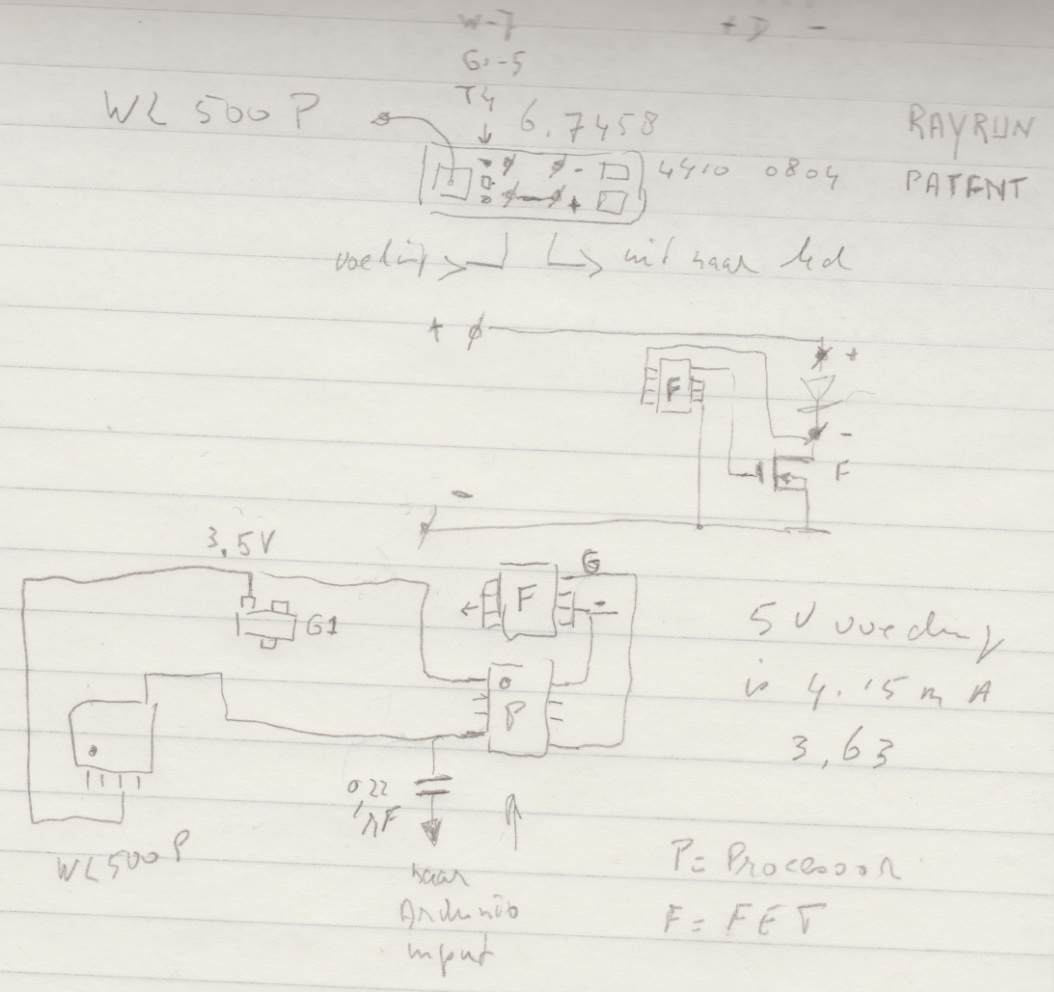 W-7
+ D -
G.-5
T4
WL 500 P
6.7458
RAYRUN
4410 0804
PATENT
- +
voeding
uit naar led
+
+
F
-
F
-
3.5V
G
F
-
G1
P
5V voeding
is 4.15 mA
3,63
0.22
naar
Arduino
input
WL500P
P= Processor
F= FET